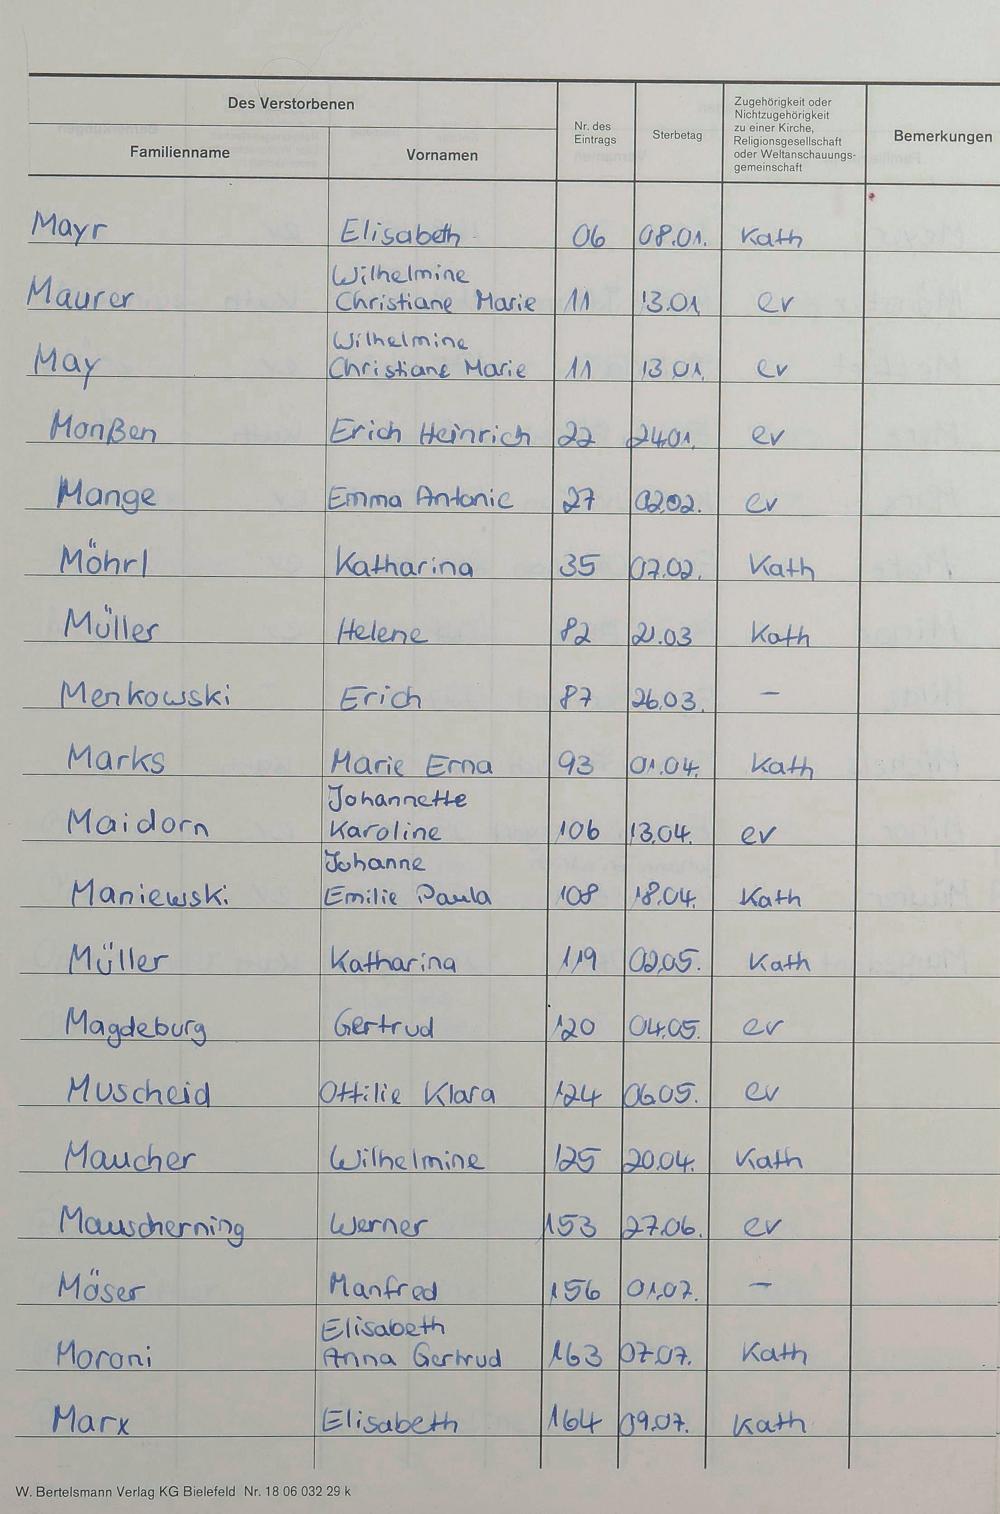 Des Verstorbenen
Familienname
Vornamen
Nr. des
Eintrags
Sterbetag
Zugehörigkeit oder
Nichtzugehörigkeit
zu einer Kirche,
Religionsgesellschaft
oder Weltanschauungs-
gemeinschaft
Bemerkungen
Mayr Elisabeth 06 08.01. Kath
Wilhelmine
Maurer Christiane Marie 11 13.01. ev
Wilhelmine
May Christiane Marie 11 13.01. ev
Monßen Erich Heinrich 22 24.01. ev
Mange Emma Antonie 27 02.02. ev
Möhrl Katharina 35 07.02. Kath
Müller Helene 82 21.03 Kath
Menkowski Erich 87 26.03. -
Marks Marie Erna 93 01.04. Kath
Johannette
Maidorn Karoline 106 13.04. ev
Johanne
Maniewski Emilie Paula 108 18.04. Kath
Müller Katharina 119 02.05. Kath
Magdeburg Gertrud 120 04.05. ev
Muscheid Ottilie Klara 124 06.05. ev
Maucher Wilhelmine 125 20.04. Kath
Mauscherning Werner 153 27.06. ev
Möser Manfred 156 01.07. -
Elisabeth
Moroni Anna Gertrud 163 07.07. Kath
Marx Elisabeth 164 09.07. Kath
W. Bertelsmann Verlag KG Bielefeld Nr. 18 06 032 29 k